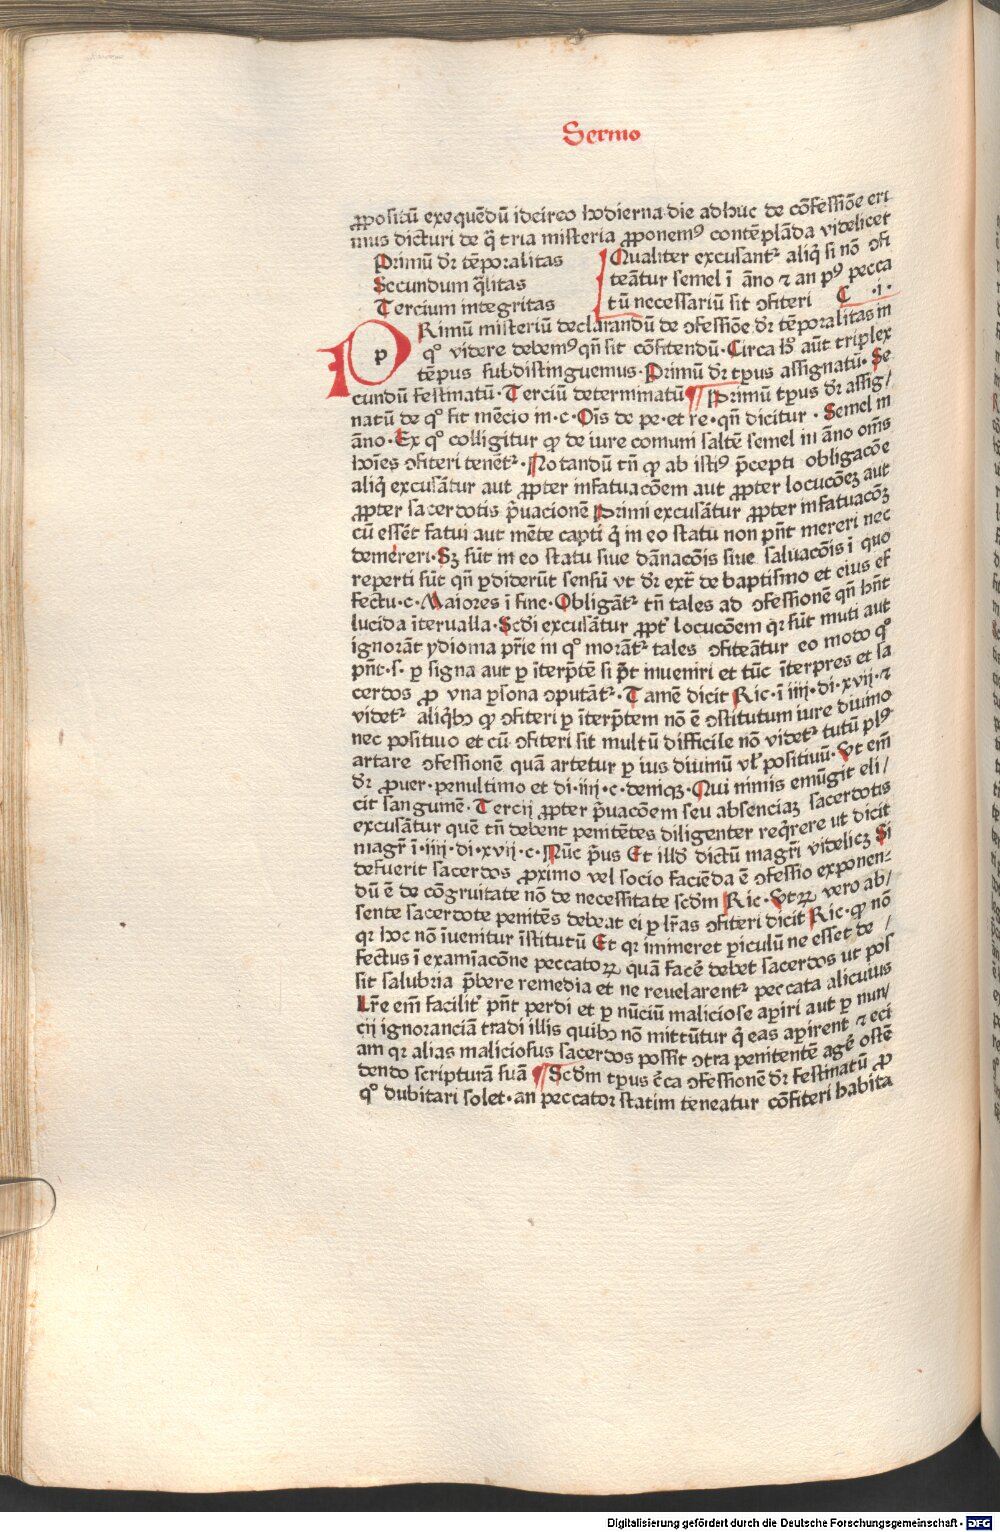 Sermo
ꝓpositū exequēdū idcirco hodierna die adhuc de cōfessiōe eri
mus dicturi de q̄ tria misteria ꝓponemꝰ contēplāda videlicet
Primū dr̄ tēporalitas
Secundum q̄litas
Tercium integritas
Qualiter excusantᷣ aliqͥ si nō ꝯfi
teātur semel ī āno ⁊ an pꝰ pecca
tū necessariū sit ꝯfiteri C ·i·
PRimū misteriū declarandū de ꝯfessiōe dr̄ tēporalitas in
qͦ videre debemꝰ qn̄ sit cōfitendū·Circa hͦ aūt triplex
tēpus subdistinguemus·Primū dr̄ tꝑus assignatū·Se
cundū festinatū·Terciū determinatū¶Primū tꝑus dr̄ assig/
natū de qͦ fit mēcio in·c·Oīs de pe·et re·qn̄ dicitur·Semel in
āno·Ex qͦ colligitur ꝙ de iure comuni saltē semel in āno om̄s
hoīes ꝯfiteri tenetᷣ·Notandū tn̄ ꝙ ab istiꝰ p̄cepti obligacōe
aliqͥ excusātur aut ꝓpter infatuacōem aut ꝓpter locucōeꝫ aut
ꝓpter sacerdotis p̄uacionē Primi excusātur ꝓpter infatuacōꝫ
cū essēt fatui aut mēte capti qͥ in eo statu non pn̄t mereri nec
demereri·Sꝫ sūt in eo statu siue dānacōis siue saluacōis ī quo
reperti sūt qn̄ ꝑdiderūt sensū vt dr̄ ext̄ de baptismo et eius ef
fectu·c·Maiores ī fine·Obligātᷣ tn̄ tales ad ꝯfessionē qn̄ hn̄t
lucida īterualla·Scd̓i excusātur ꝓpt̓ locucōem qr sūt muti aut
ignorāt ydioma pr̄ie in qͦ morātᷣ tales ꝯfiteātur eo modo qͦ
pn̄t·s·ꝑ signa aut ꝑ īterpr̄tē si p̄t inueniri et tūc īterpres et sa
cerdos ꝓ vna ꝑsona ꝯputātᷣ·Tamē dicit Ric·ī iiij·di·xvij·⁊
videtᷣ aliqͥbꝫ ꝙ ꝯfiteri ꝑ īterpr̄tem nō ē ꝯstitutum iure diuino
nec positiuo et cū ꝯfiteri sit multū difficile nō videtᷣ tutū plꝰ
artare ꝯfessionē quā artetur ꝑ ius diuinū vl̓ positiuū·Vt em̄
dr̄ ꝓuer·penultimo et di·iiij·c·deniqꝫ·Qui nimis emūgit eli/
cit sanguinē·Tercij ꝓpter p̄uacōem seu absenciaꝫ sacerdotis
excusātur quē tn̄ debent penitētes diligenter reqͥrere ut dicit
magr̄ ī·iiij·di·xvij·c·Nūc p̄us Et illd̓ dictū magr̄i videlicꝫ Si
defuerit sacerdos ꝓximo vel socio faciēda ē ꝯfessio exponen-
dū ē de cōgruitate nō de necessitate scd̓m Ric·Vtꝝ vero ab/
sente sacerdote penitēs debeat ei ꝑ lr̄as ꝯfiteri dicit Ric·ꝙ nō
qr hoc nō īuenitur īstitutū Et qr immeret ꝑiculū ne esset de/
fectus ī examīacōne peccatoꝝ quā facē debet sacerdos ut pos
sit salubria p̄bere remedia et ne reuelarentᷣ peccata alicuius
Lr̄e em̄ facilit̓ pn̄t perdi et ꝑ nūciū maliciose aꝑiri aut ꝑ nun/
cij ignoranciā tradi illis quibꝫ nō mittūtur qͥ eas aꝑirent ⁊ eci
am qr alias maliciosus sacerdos possit ꝯtra penitentē agē ostē
dendo scripturā suā ¶Scd̓m tꝑus c̄ca ꝯfessionē dr̄ festinatū ꝓ
qͦ dubitari solet·an peccator statim teneatur cōfiteri habita
Digitalisierung gefördert durch die Deutsche Forschungsgemeinschaft - DFG